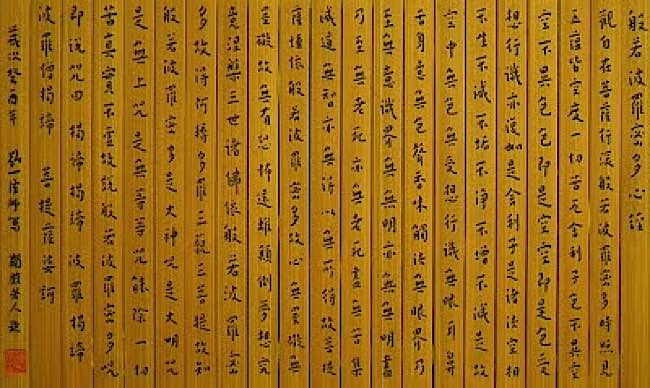 般若波羅密多心經
觀自在菩薩行深般若波羅密多時照見
五蘊皆空度一切苦厄舍利子色不異空
空不異色色即是空空即是色受
想行識亦復如是舍利子是諸法空相
不生不滅不垢不淨不增不減是故
空中無色無受想行識無眼耳鼻
舌身意無色聲香味觸法無眼界乃
至無意識界無無明亦無無明盡
乃至無老死亦無老死盡無苦集
滅道無智亦無得以無所得故菩提
薩埵依般若波羅密多故心無罣礙無
罣礙故無有恐怖遠離顛倒夢想究
竟涅槃三世諸佛依般若波羅密
多故得阿耨多羅三藐三菩提故知
般若波羅密多是大神咒是大明咒
是無上咒是無等等咒能除一切
苦真實不虛故說般若波羅密多咒
即說咒曰 揭諦揭諦 波羅揭諦
波羅僧揭諦 菩提薩婆訶
歲次癸酉年 弘一法師寫